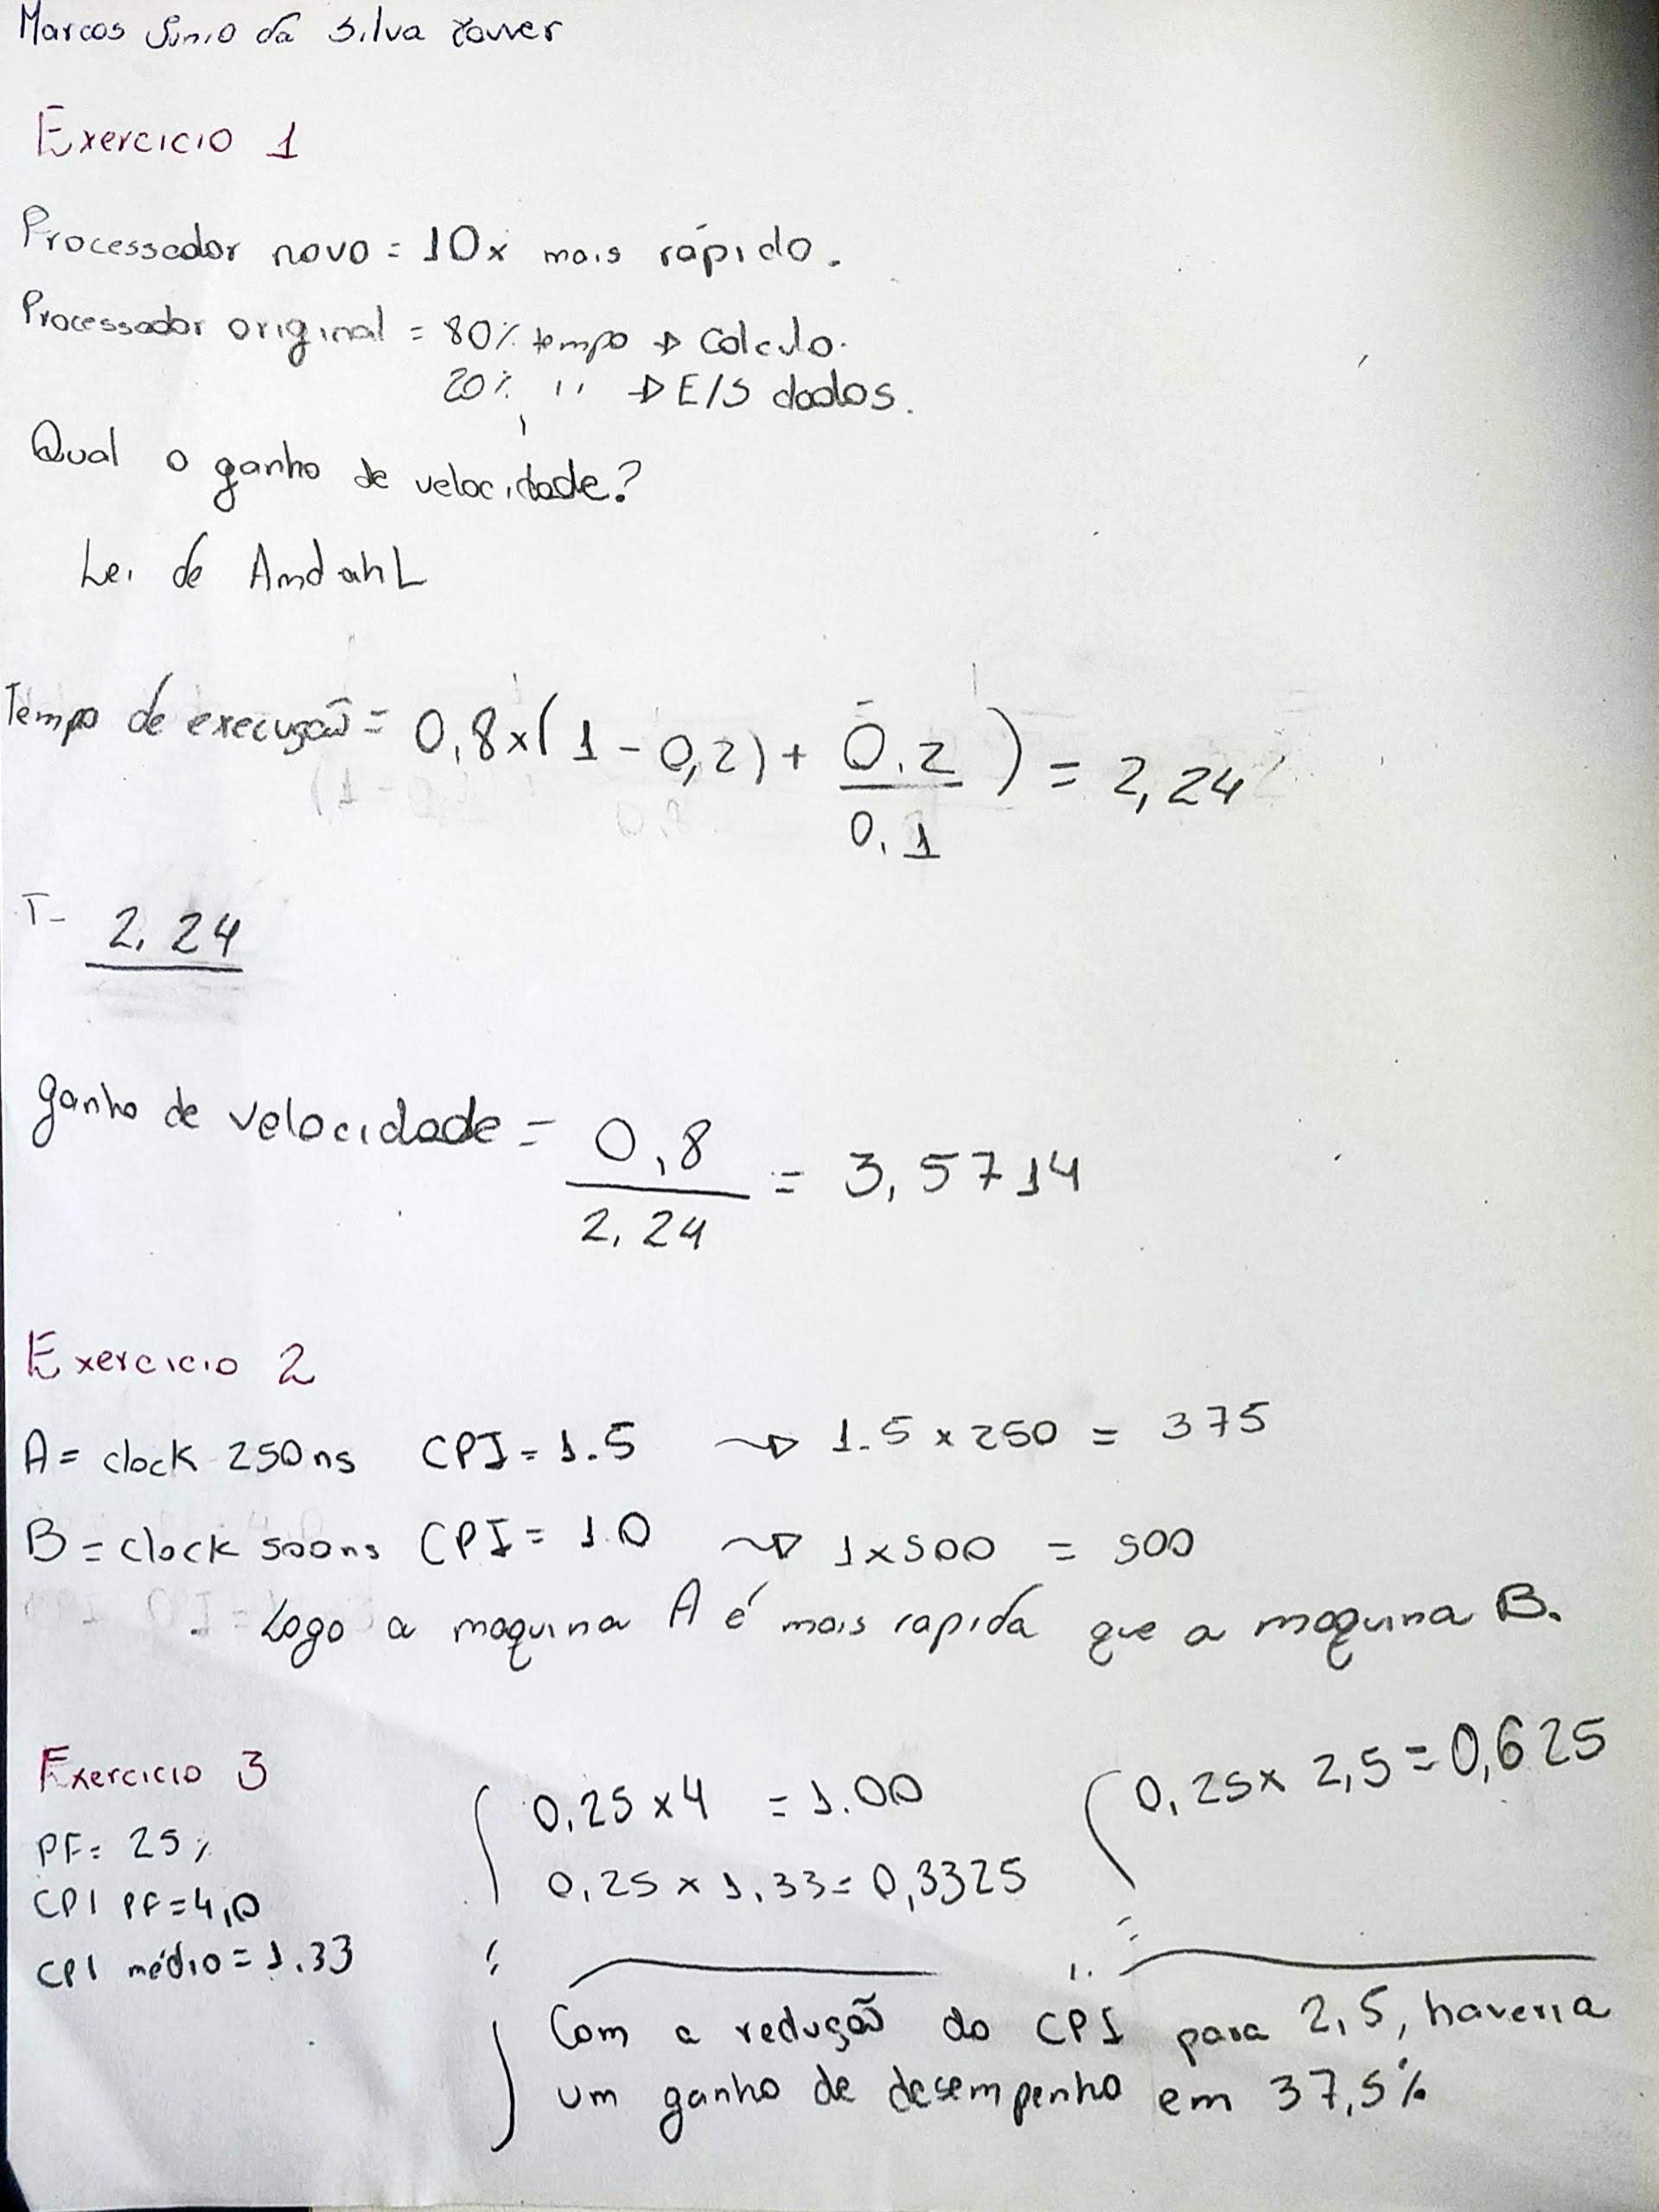 Marcos Junio da Silva Xavier
Exercicio 1
Processador novo = 10x mais rápido.
Processador original = 80% tempo → Calculo.
20% " → E/S dados.
Qual o ganho de velocidade?
Lei de AmdahL
Tempo de execução = 0,8x(1-0,2)+ 0,2/0,1) = 2,24
T- 2,24
ganho de velocidade = 0,8/2,24 = 3,5714
Exercicio 2
A = clock 250ns CPI = 1.5 → 1.5 x 250 = 375
B = clock 500ns CPI = 1.0 → 1x500 = 500
Logo a maquina A é mais rapida que a maquina B.
Exercicio 3
PF = 25%
CPI PF = 4,0
CPI médio = 1.33
0,25x4 = 1.00
0,25 x 1.33 = 0,3325
0,25x 2,5 = 0,625
Com a redução do CPI para 2,5, haveria
um ganho de desempenho em 37,5%